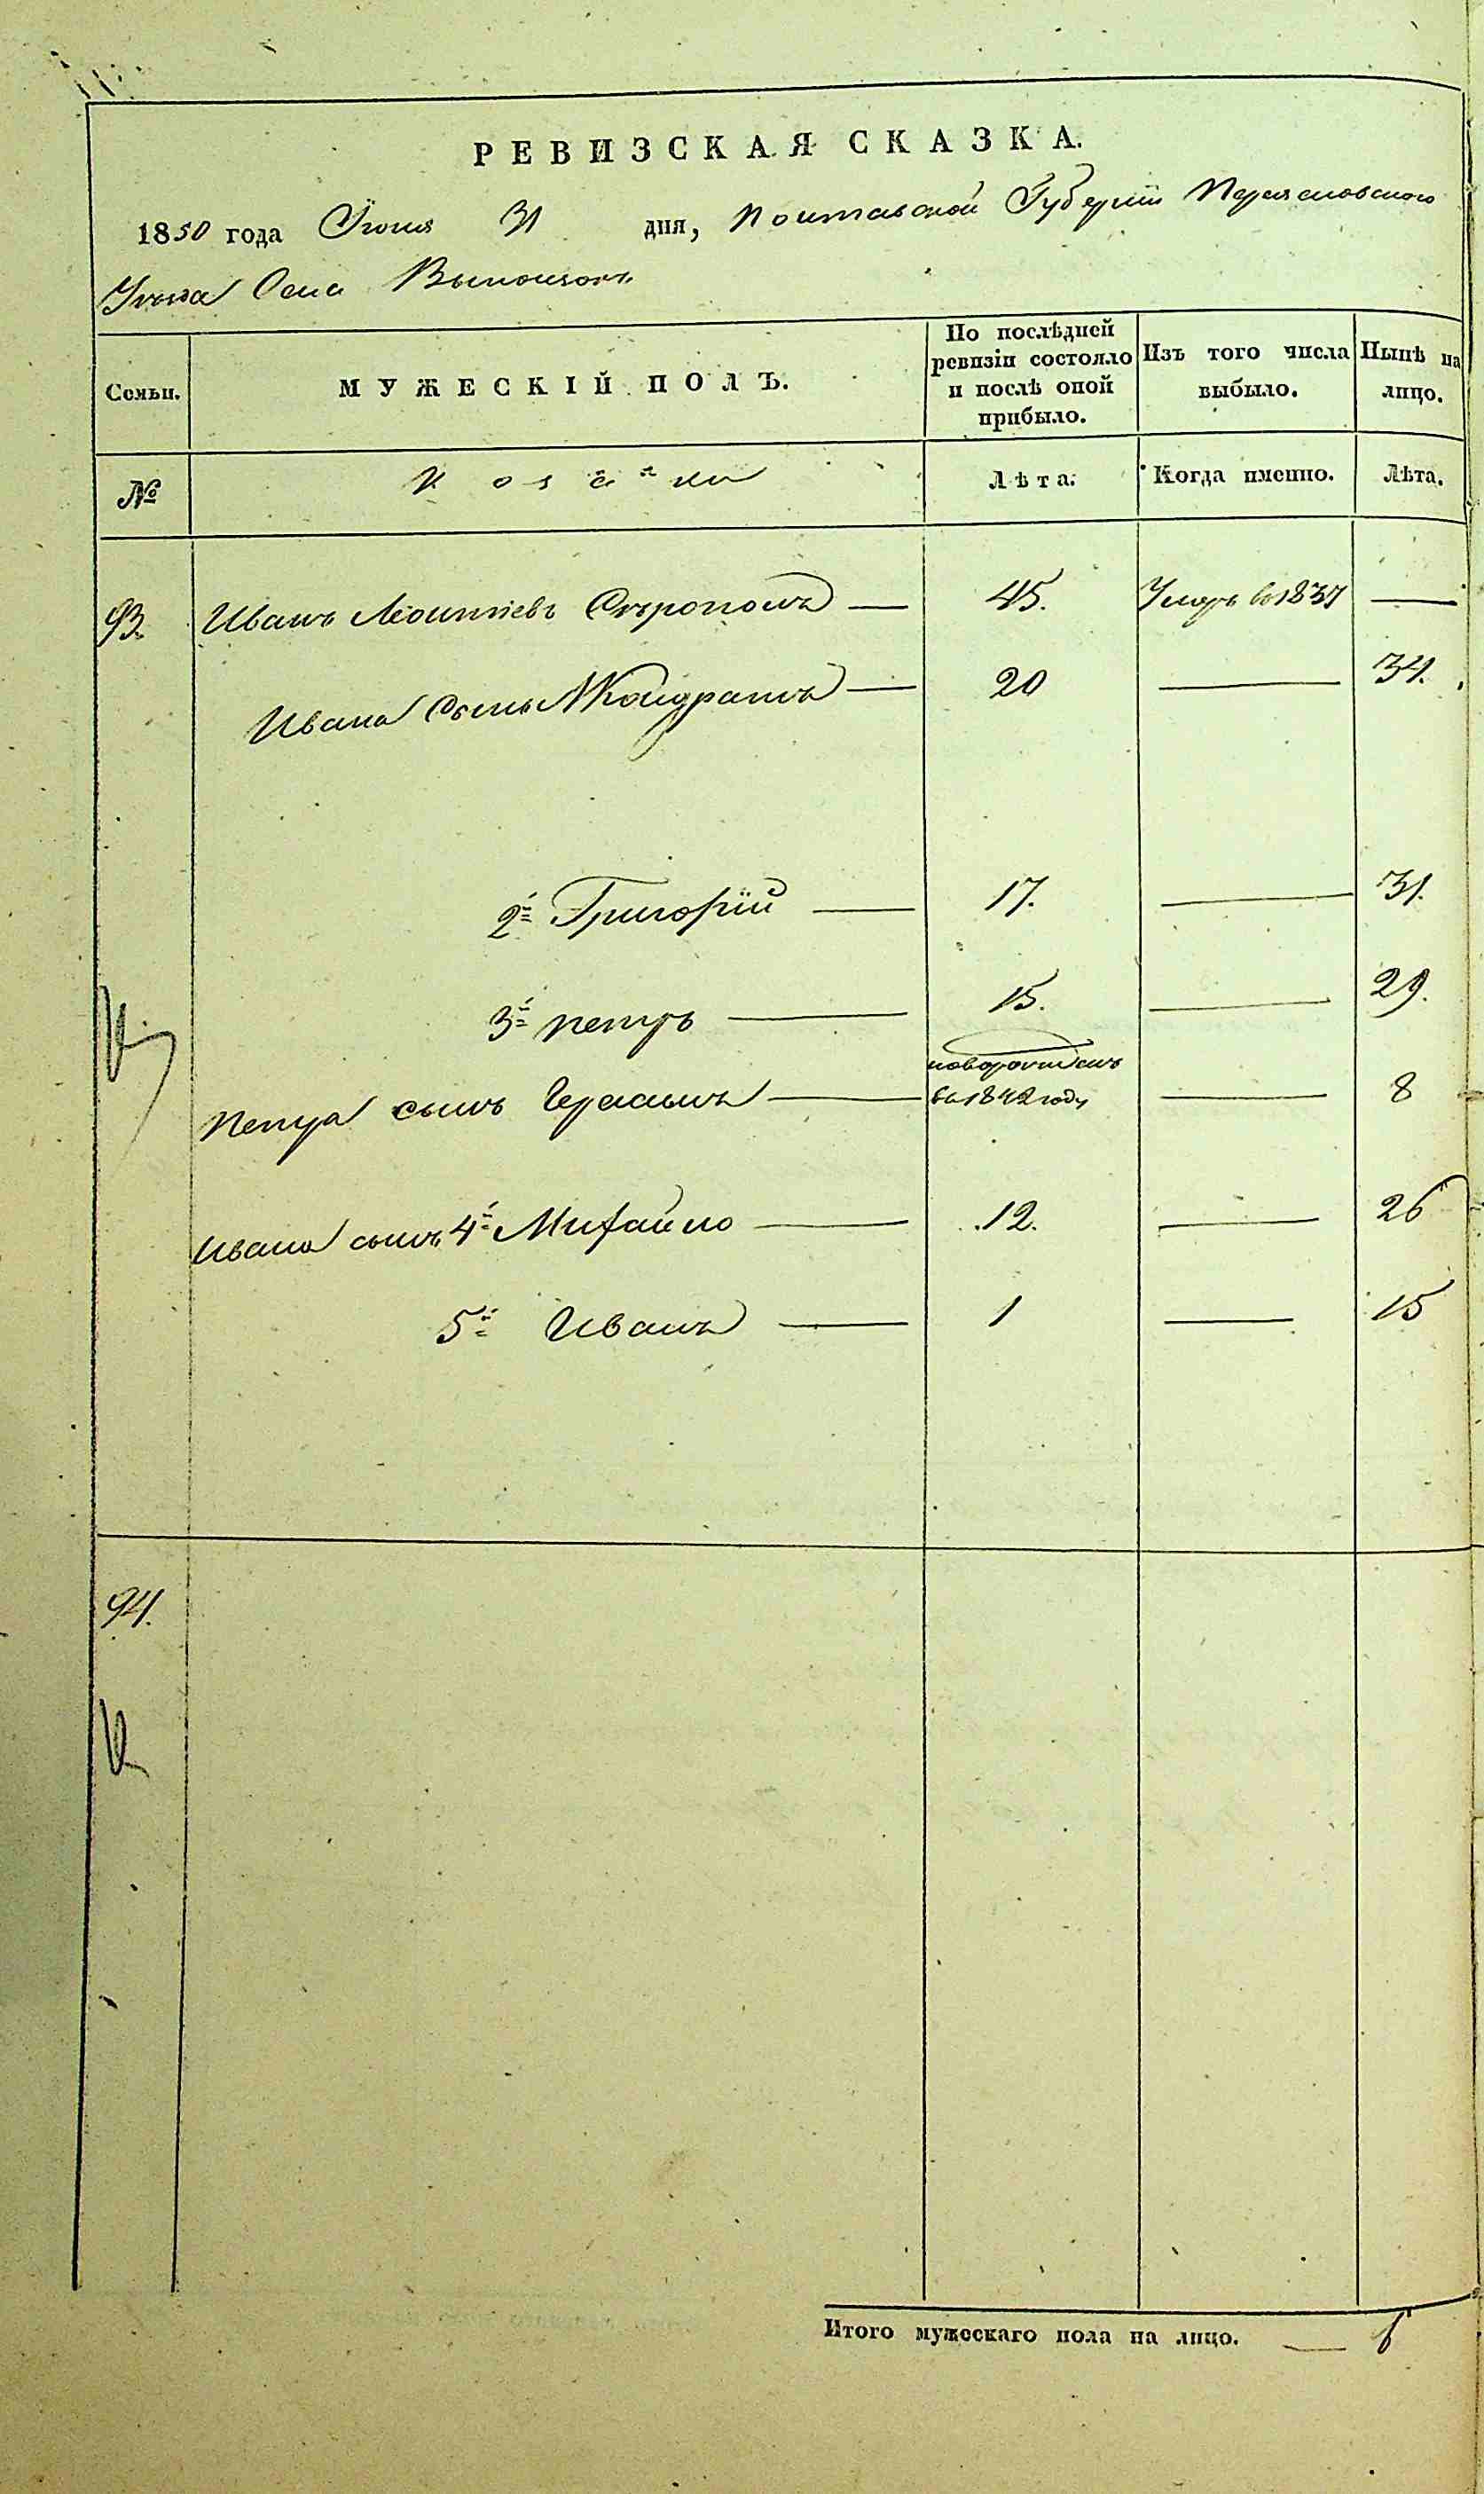 РЕВИЗСКАЯ СКАЗКА.
1850 года Июня 31 дня, Полтавской Губерніи Переясловского
Уезда Села
Семьи. МУЖЕСКІЙ ПОЛЪ. По послѣдней ревизіи состояло и послѣ оной прибыло. Изъ того числа выбыло. Нынѣ на лицо.
№ Козаки Лѣта. Когда именно. Лѣта.
93. Иванъ Леонтіевъ 45. Умеръ въ 1837 —
Ивана сынъ Кондратъ — 20 — 34.
2й Григорій — 17. — 31.
3й Петръ — 15. — 29.
Петра сынъ Герасимъ — новорожденъ въ 1842 году — 8
Ивана сынъ 4й Михайло — 12. — 26
5й Иванъ — 1 — 15
94.
Итого мужескаго пола на лицо. — 6